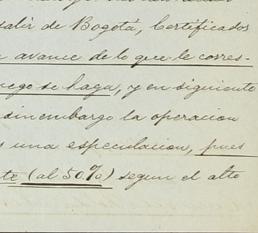 salir de Bogotá, Certificados
avance de lo que le corres-
luego se haga, y en siguiente
sin embargo la operacion
una especulacion, pues
te (al 50%) segun el alto